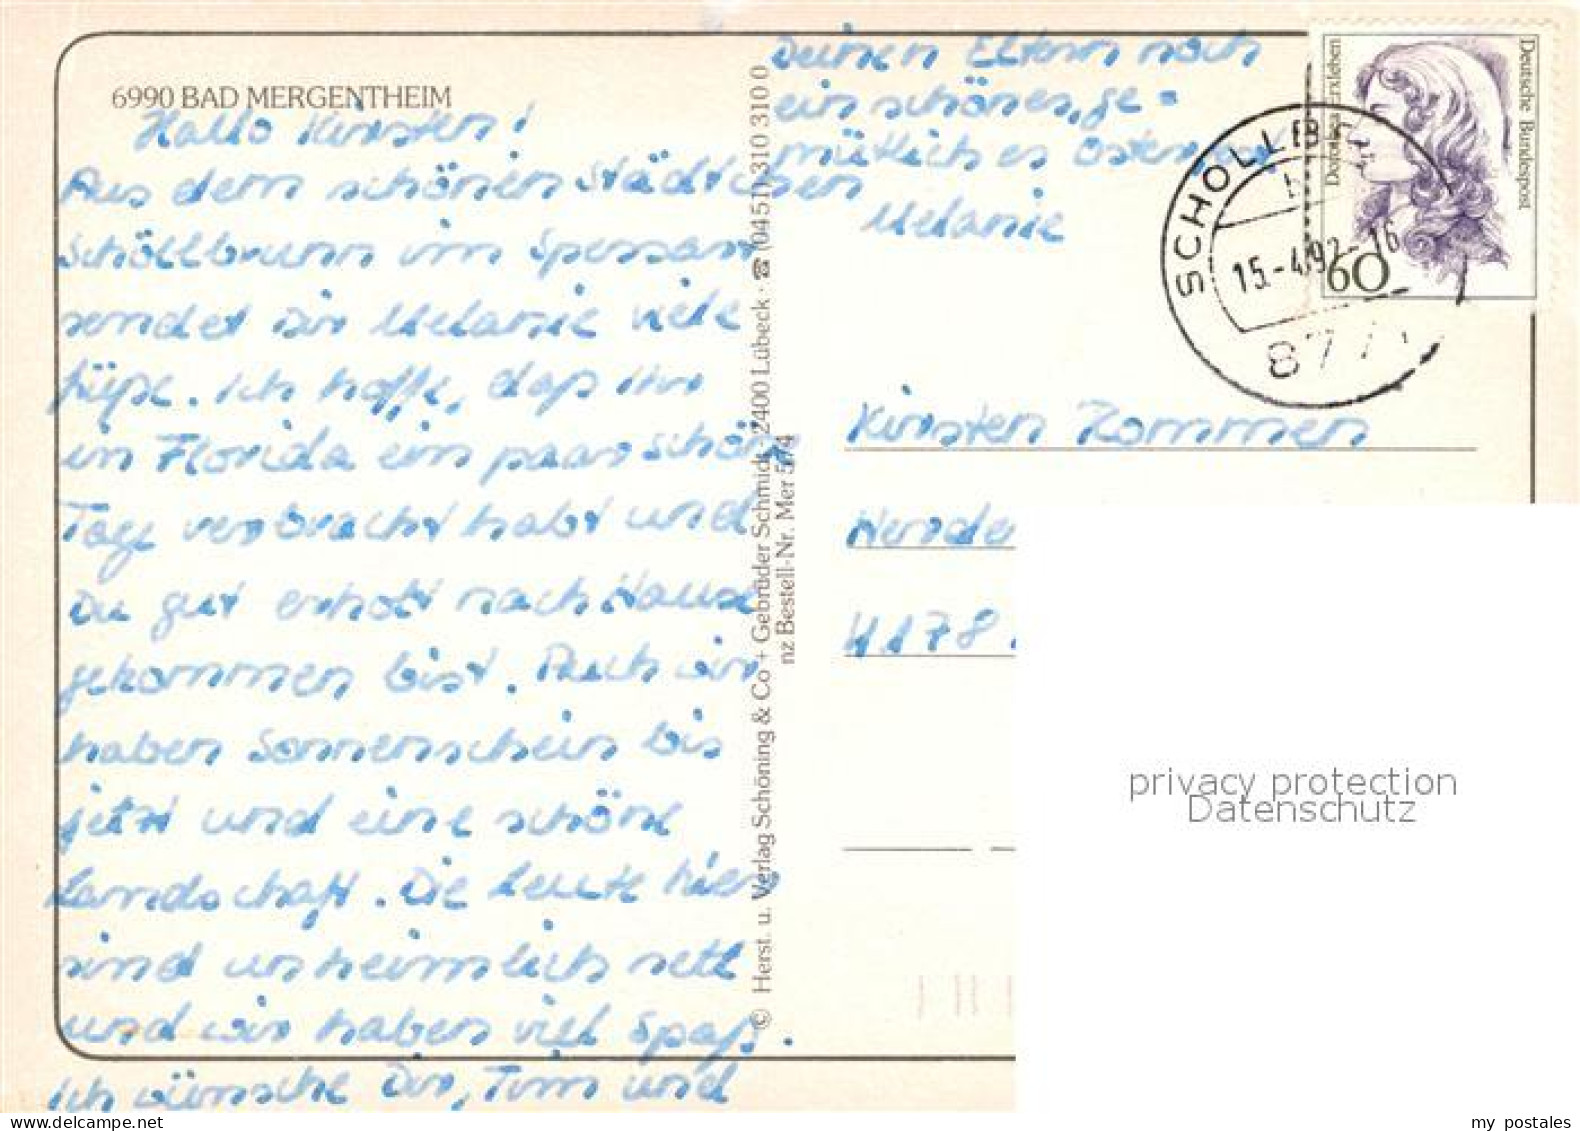 6990 BAD MERGENTHEIM
Hallo Kirsten!
Aus dem schönen Städtchen
Schöllbrunn im Spessart
sendet Dir Melanie viele
Grüße. Ich hoffe, daß ihr
in Florida ein paar schöne
Tage verbracht habt und
Du gut erholt nach Hause
gekommen bist. Auch wir
haben Sonnenschein bis
jetzt und eine schöne
Landschaft. Die Leute hier
sind unheimlich nett
und wir haben viel Spaß.
Ich wünsche Dir, Tim und
Deinen Eltern noch
ein schönes, ge-
mütliches Osterfest
Melanie
© Herst. u. Verlag Schöning & Co + Gebrüder Schmidt · 2400 Lübeck · ☎ (0451) 310 310 0
nz Bestell-Nr. Mer 574
Dorothea Erxleben
Deutsche Bundespost
60
SCHOLLB
15.-4.92-16
877
Kirsten Zommers
4178
privacy protection
Datenschutz
my postales
www.delcampe.net